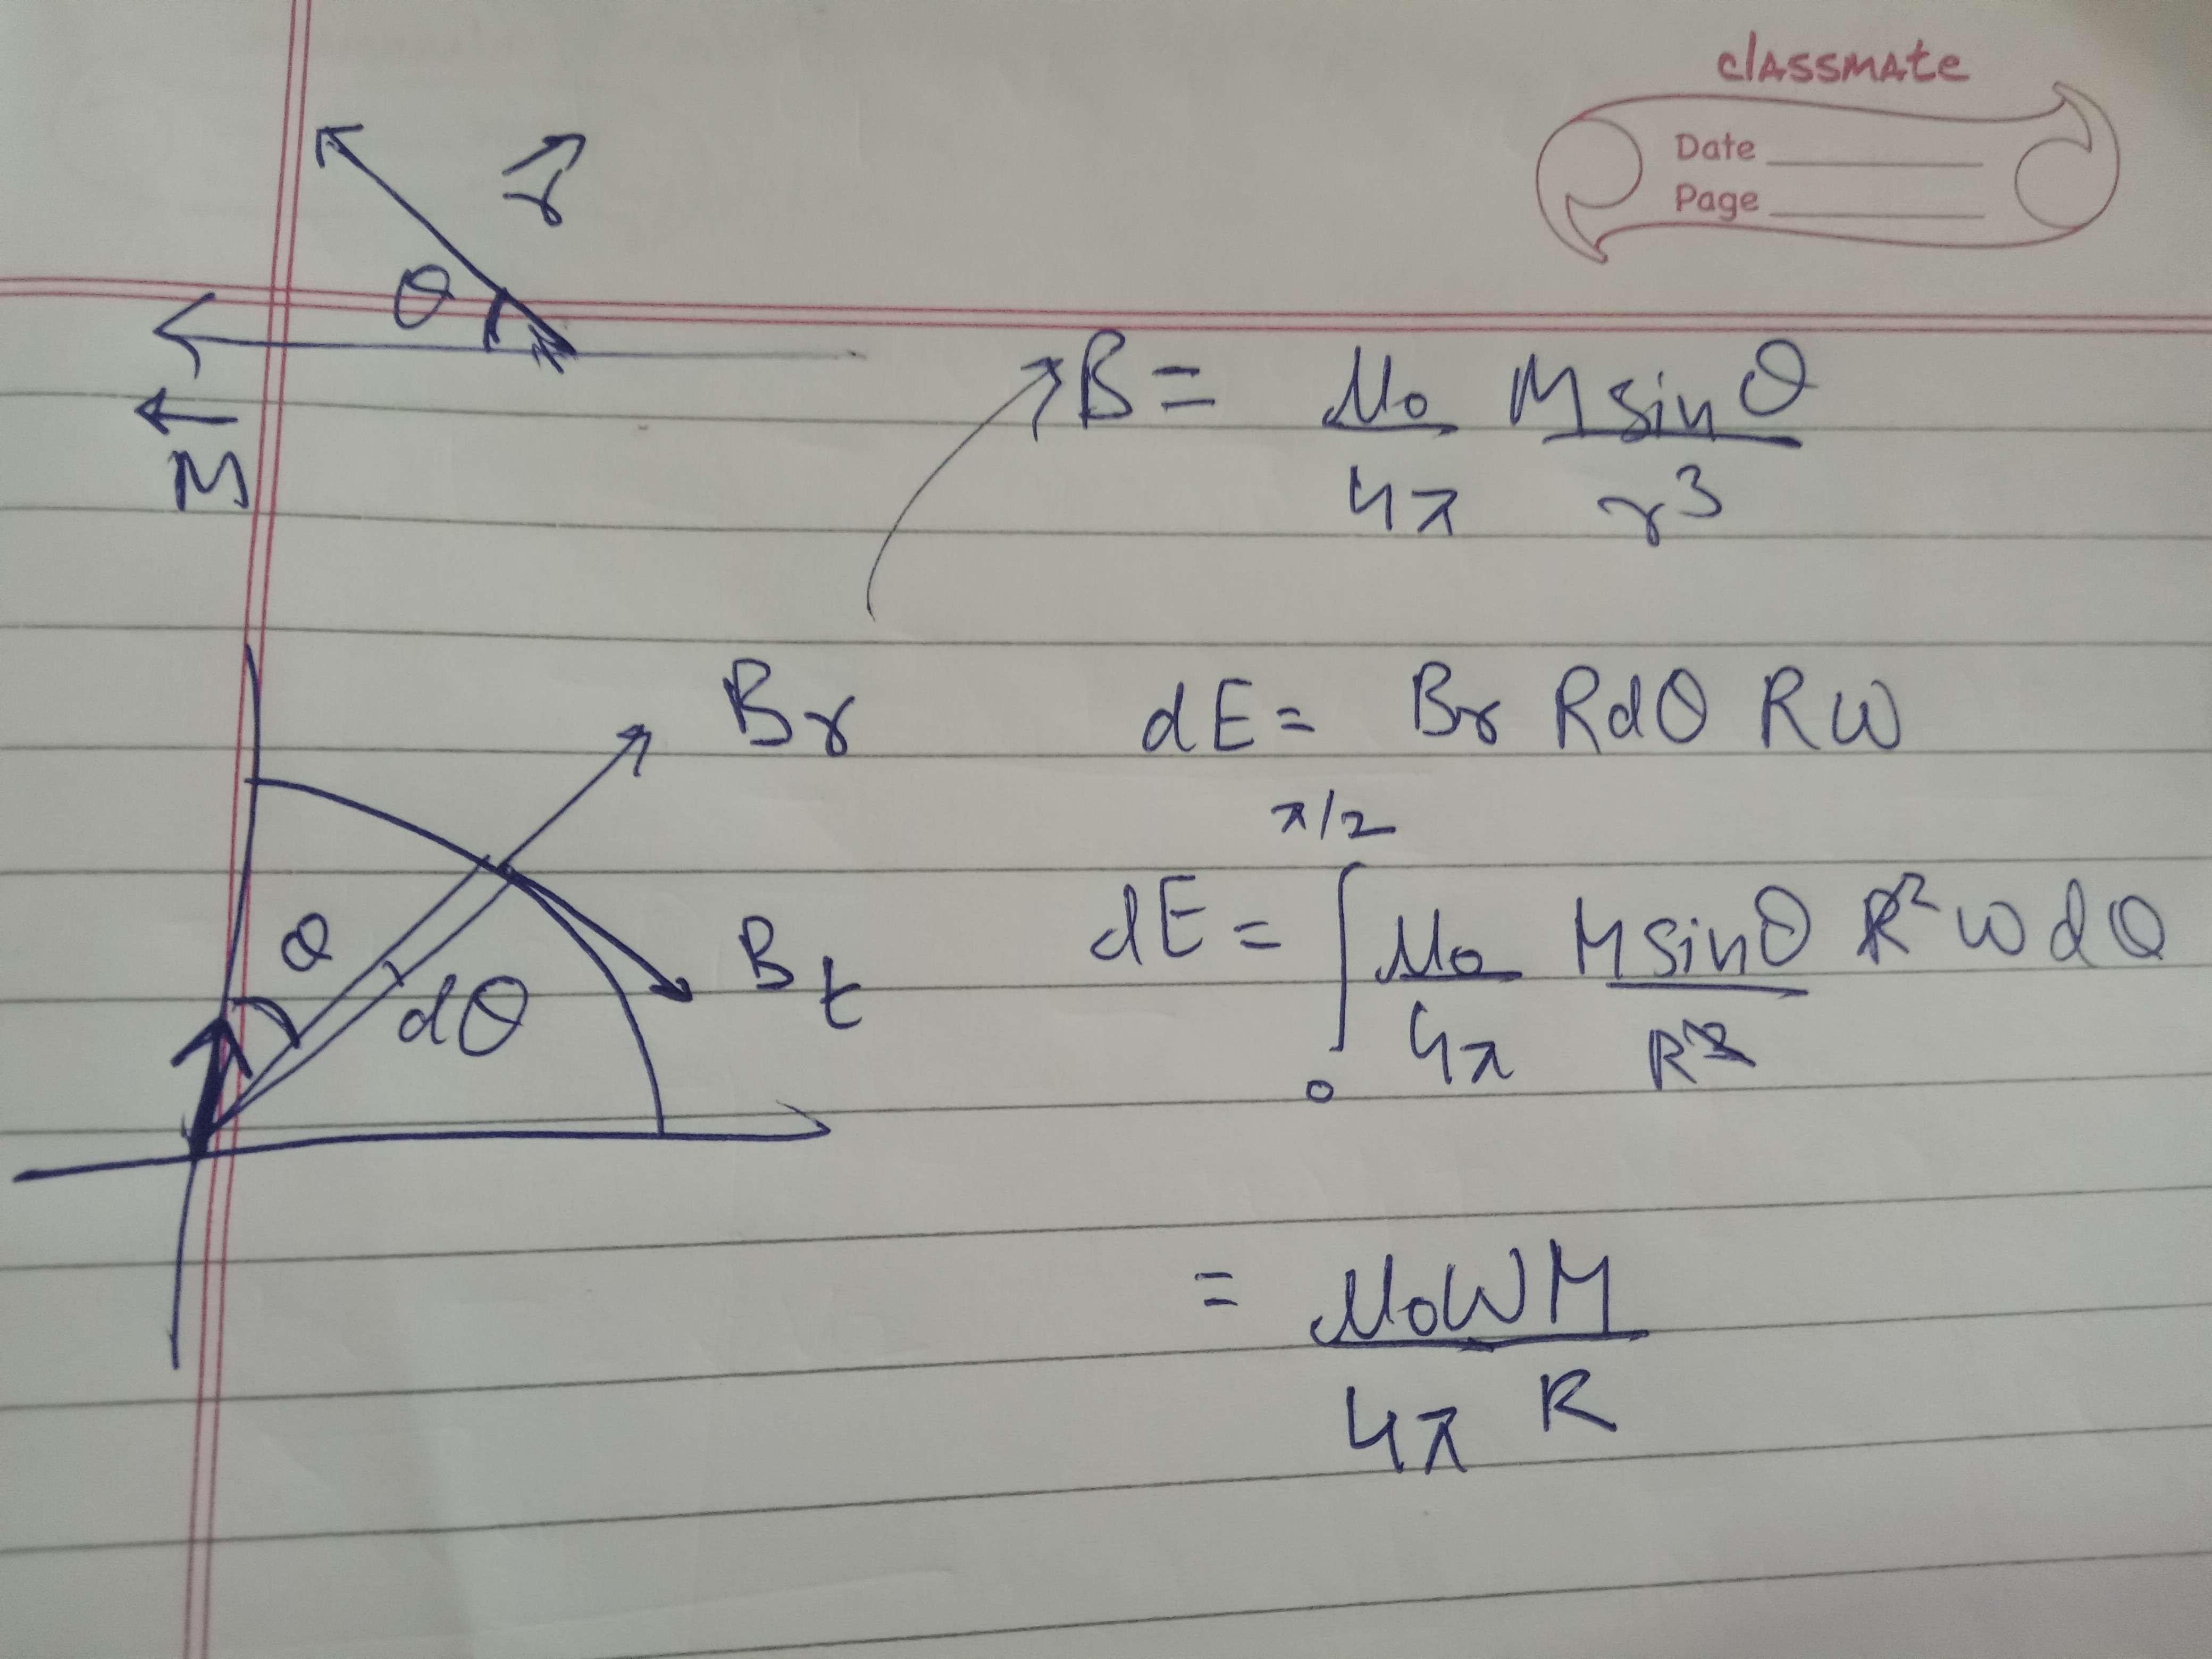 classmate
Date
Page
r⃗
θ
M⃖
B = μ₀/4π M sinθ/r³
Br
dE = Br Rdθ Rω
θ
dθ
Bt
dE = ∫₀^π/2 μ₀/4π M sinθ/R³ R² ω dθ
= μ₀ωM/4π R